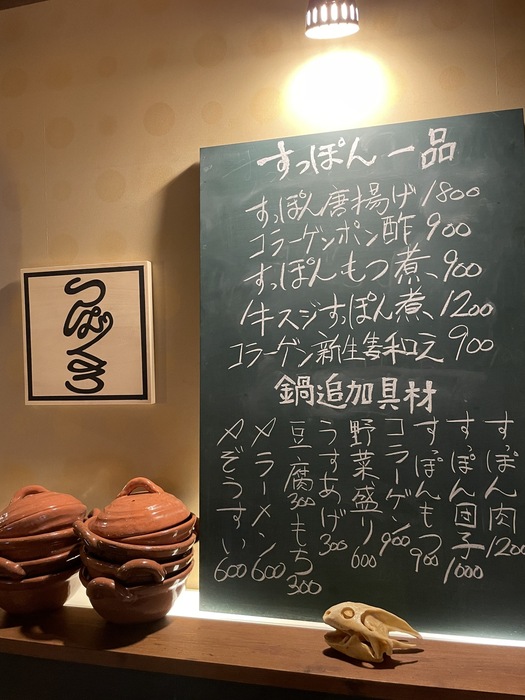 すっぽん一品
すっぽん唐揚げ 1800
コラーゲンポン酢 900
すっぽんもつ煮、900
牛スジすっぽん煮、1200
コラーゲン新生姜和え 900
鍋追加具材
すっぽん肉 1200
すっぽん団子 1000
すっぽんもつ 900
コラーゲン 900
野菜盛り 600
うすあげ 300
豆腐 300
もち 300
〆ラーメン 600
〆ぞうすい 600